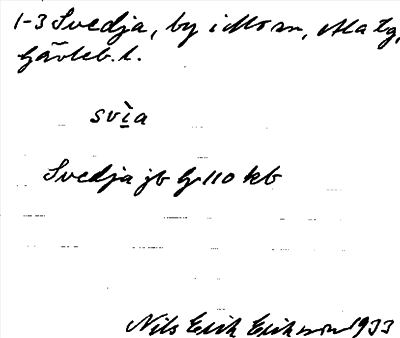 1-3 Svedja, by i Mo sn, Ala tg,
Gävleb. l.
svìa
Svedja jb Gr 110 kb
Nils Erik Erikson 1933